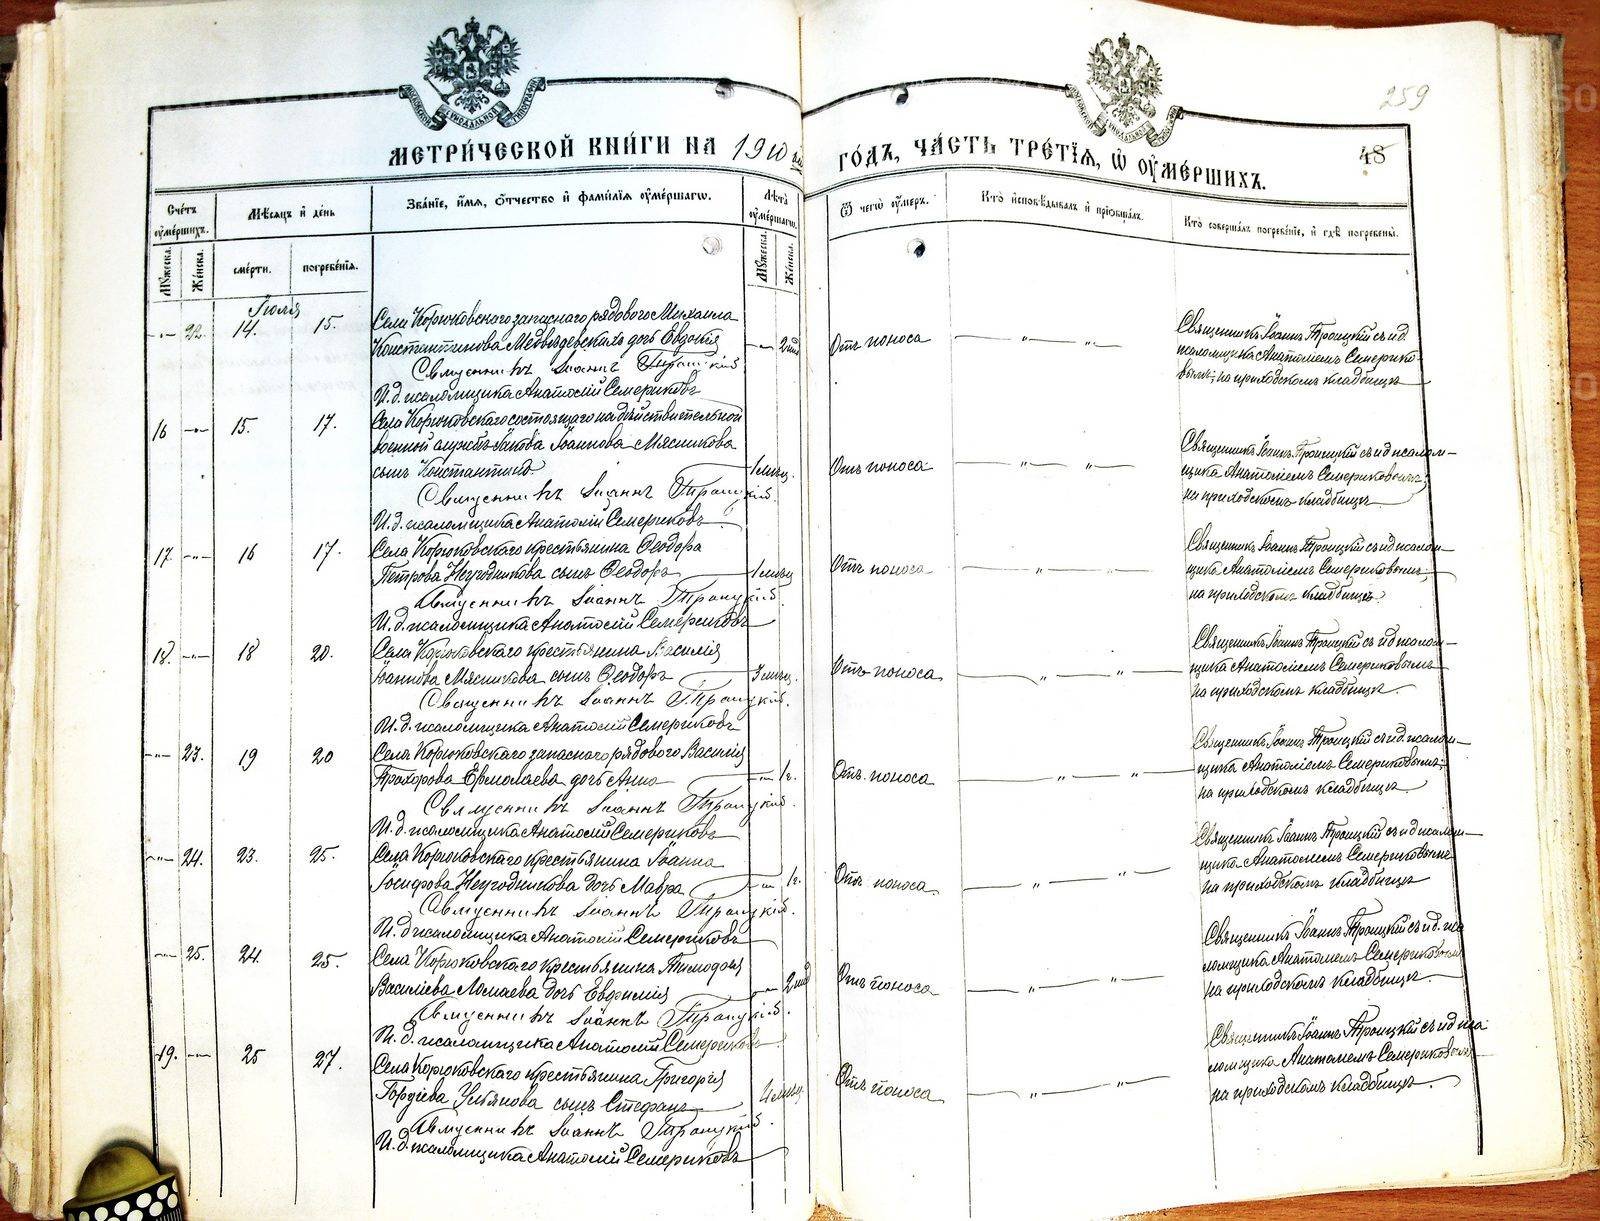 259
МЕТРИ́ЧЕСКОЙ КНИ́ГИ НА 1910 ый
ГО́ДЪ, ЧА́СТЬ ТРЕ́ТІЯ, Ѽ ОУМЕ́РШИХЪ.
48
Сче́тъ оуме́ршихъ.
Мꙋжеска.
Же́нска.
Мѣ́сяцъ и҆ де́нь
сме́рти.
погребе́нія.
Зва́ніе, и҆́мя, ѻ҆́тчество и҆ фами́лія оуме́ршагѡ.
Лѣ́та оуме́ршагѡ.
Мꙋжеска.
Же́нска.
Ѿ чегѡ̀ оу́меръ.
Кто̀ и҆сповѣ́дывалъ и҆ пріѻбща́лъ.
Кто̀ соверша́лъ погребе́ніе, и҆ гдѣ̀ погребены̀.
Іюля
-"- 22. 14. 15.
Села Корюковскаго запаснаго рядового Михаила
Константинова Медвѣдевскихъ дочь Евдокія
-"- 2 нед
Священникъ Іоаннъ Троицкій
И. д. псаломщика Анатолій Семериковъ
Отъ поноса
" "
Священникъ Іоаннъ Троицкій съ и д.
псаломщика Анатоліемъ Семерико-
вымъ; на приходскомъ кладбищѣ
16 -"- 15. 17.
Села Корюковскаго состоящаго на дѣйствительной
военной службѣ Іакова Іоаннова Мясникова
сынъ Константинъ
1 мѣсц.
Священникъ Іоаннъ Троицкій.
И. д. псаломщика Анатолій Семериковъ
Отъ поноса
" "
Священникъ Іоаннъ Троицкій съ и д псалом-
щика Анатоліемъ Семериковымъ;
на приходскомъ кладбищѣ
17. -"- 16 17.
Села Корюковскаго крестьянина Ѳеодора
Петрова Негодникова сынъ Ѳеодоръ
1 мѣсц
Священникъ Іоаннъ Троицкій.
И. д. псаломщика Анатолій Семериковъ
Отъ поноса
" "
Священникъ Іоаннъ Троицкій съ и д псалом-
щика Анатоліемъ Семериковымъ;
на приходскомъ кладбищѣ
18. -"- 18 20.
Села Корюковскаго крестьянина Василія
Іоаннова Мясникова сынъ Ѳеодоръ
3 мѣсц.
Священникъ Іоаннъ Троицкій.
И. д. псаломщика Анатолій Семериковъ
Отъ поноса
" "
Священникъ Іоаннъ Троицкій съ и д псалом-
щика Анатоліемъ Семериковымъ
на приходскомъ кладбищѣ.
-"- 23. 19 20
Села Корюковскаго запаснаго рядового Василія
Прохорова Ермолаева дочь Анна
-"- 1 г.
Священникъ Іоаннъ Троицкій.
И. д. псаломщика Анатолій Семериковъ
Отъ поноса
" "
Священникъ Іоаннъ Троицкій съ и д. псалом-
щика Анатоліемъ Семериковымъ;
на приходскомъ кладбищѣ
-"- 24. 23. 25.
Села Корюковскаго крестьянина Іоанна
Іосифова Негодникова дочь Мавра
-"- 1 г.
Священникъ Іоаннъ Троицкій.
И. д псаломщика Анатолій Семериковъ
Отъ поноса
" "
Священникъ Іоаннъ Троицкій съ и д псалом-
щика Анатоліемъ Семериковымъ
на приходскомъ кладбищѣ
-"- 25. 24. 25.
Села Корюковскаго крестьянина Тимофея
Василіева Ломаева дочь Евфимія
-"- 2 нед
Священникъ Іоаннъ Троицкій.
И. д. псаломщика Анатолій Семериковъ
Отъ поноса
" "
Священникъ Іоаннъ Троицкій съ и д. пса
ломщика Анатоліемъ Семериковымъ
на приходскомъ кладбищѣ.
19. -"- 25 27.
Села Корюковскаго крестьянина Григорія
Гордѣева Ульянова сынъ Стефанъ
4 мѣсц
Священникъ Іоаннъ Троицкій.
И. д. псаломщика Анатолій Семериковъ
Отъ поноса
" "
Священникъ Іоаннъ Троицкій съ и д пса
ломщика Анатоліемъ Семериковымъ
на приходскомъ кладбищѣ.